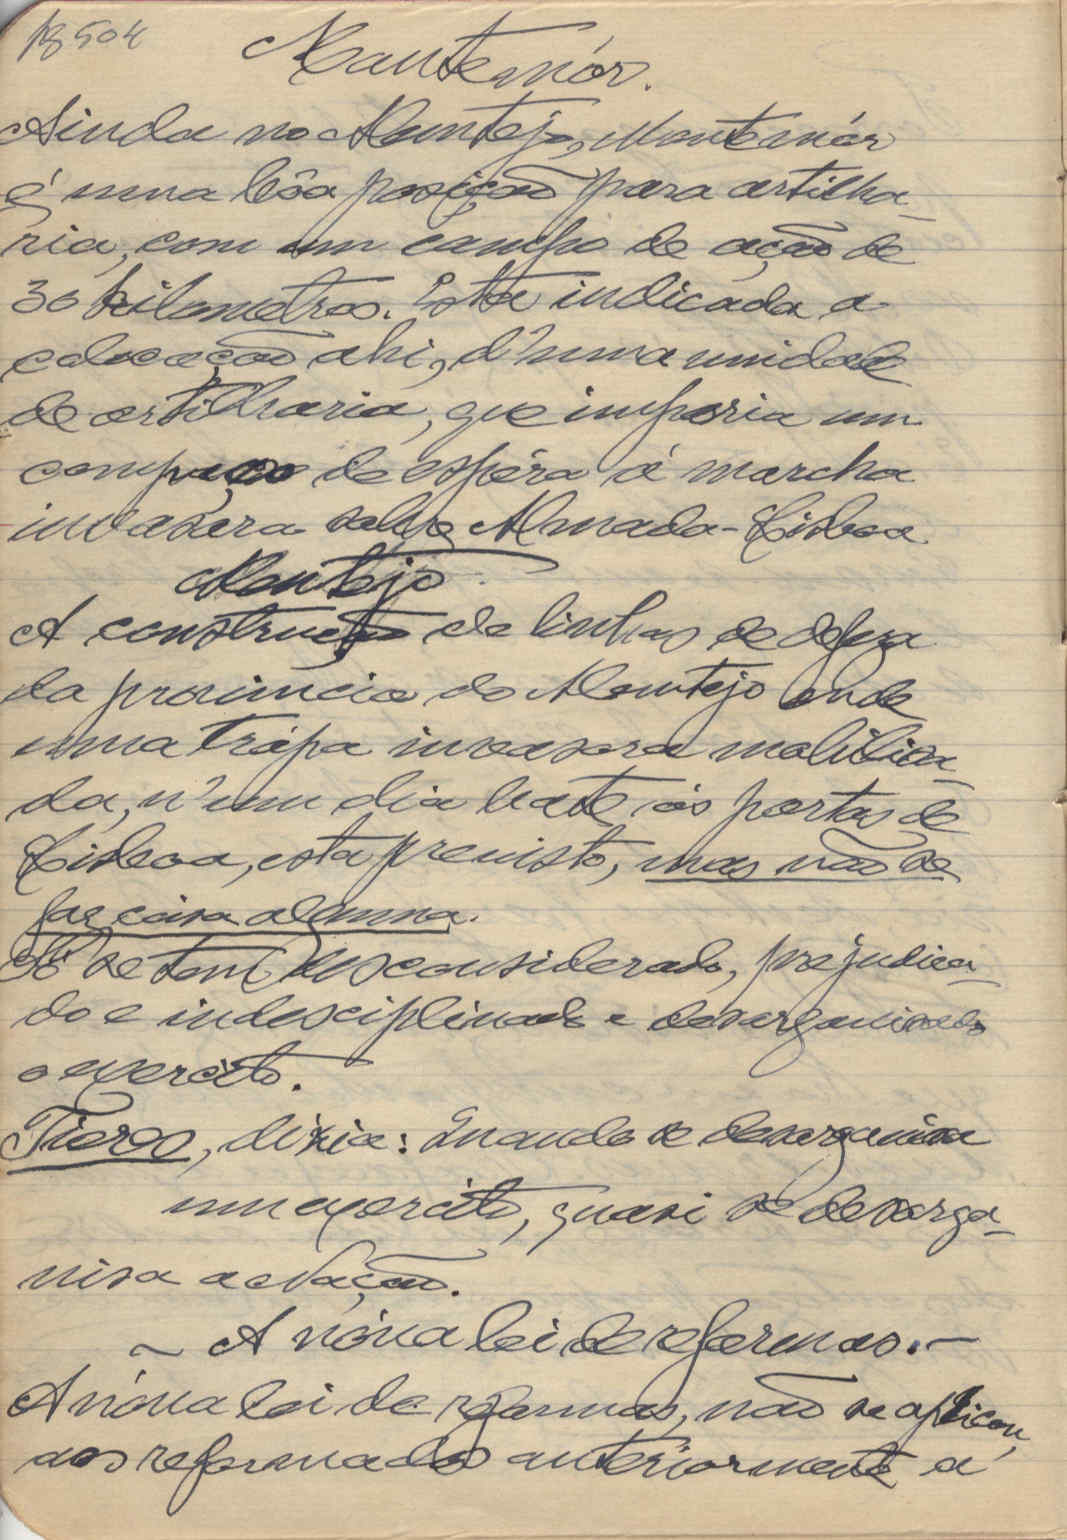 Montemór.
Ainda no Alemtejo, Montemór
é uma bôa posição para artilha-
ria, com um campo de ação de
30 kilometros. Esta indicada a
colocação ahi, d'uma unidade
de artilharia, que imporia um
compaço de espéra á marcha
invasora sobre Almada-Lisboa
Alemtejo
A construção de linhas de defesa
da provincia do Alemtejo onde
uma trópa invasora mobilisa-
da, n'um dia bate ás portas de
Lisboa, esta previsto, mas não se
faz coisa alguma.
Só se tem desconsiderado, prejudica-
do e indesciplinado e desorganisado
o exercito.
Tieres, dizia: Quando se desorganisa
um exercito, quasi se desorga-
nisa a Nação.
~ A nóva lei de reformas. ~
A nóva lei de reformas, não se aplicou,
aos reformados anteriormente á